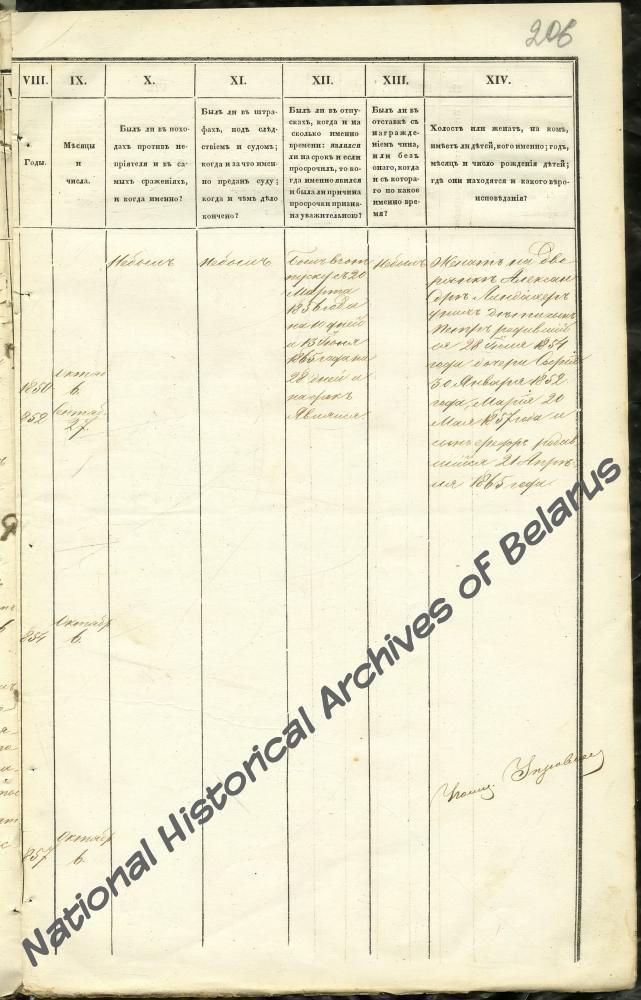 206
VIII.
IX.
X.
XI.
XII.
XIII.
XIV.
Годы.
Мѣсяцы
и
числа.
Былъ ли въ похо-
дахъ противъ не-
прiятеля и въ са-
мыхъ сраженiяхъ,
и когда именно?
Былъ ли въ штра-
фахъ, подъ слѣд-
ствiемъ и судомъ;
когда и за что имен-
но преданъ суду;
когда и чѣмъ дѣло
кончено?
Былъ ли въ отпу-
скахъ, когда и на
сколько именно
времени: являлся
ли на срокъ и если
просрочилъ, то ко-
гда именно явился
и была ли причина
просрочки призна-
на уважительною?
Былъ ли въ
отставкѣ съ
награжде-
нiемъ чина,
или безъ
онаго, когда
и съ котора-
го по какое
именно вре-
мя?
Холостъ или женатъ, на комъ,
имѣетъ ли дѣтей, кого именно; годъ,
мѣсяцъ и число рожденiя дѣтей;
гдѣ они находятся и какого вѣро-
исповѣданiя?
1850
6.
852
27.
854
6.
857
6.
Небылъ
Небылъ
Былъ в от
пуску съ 20
Марта
1856 года
на 10 дней
и 13 Iюня
1865 года на
28 дней и
на срокъ
Явился
Небылъ
Женатъ на Дво
рянкѣ Алексан
дрѣ
Петръ родившiй
ся 28 1854
года дочери Софiя
30 Января 1852
года, Марiя 20
Мая 1857 года и
родив
шiйся 21 Апрѣ
ля 1865 года
National Historical Archives of Belarus